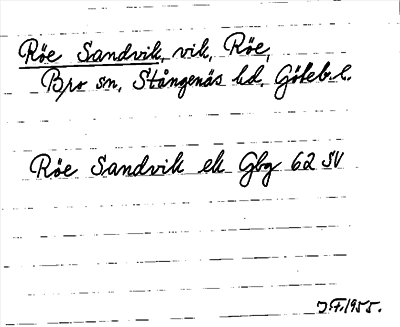 Röe Sandvik, vik, Röe,
Bro sn, Stångenäs hd, Göteb. l.
Röe Sandvik ek Gbg 62 SV
J.F. 1955.